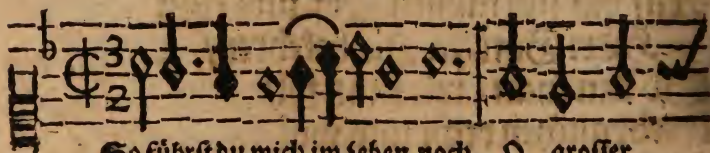 3
2
So führst du mich im Leben noch O grosser